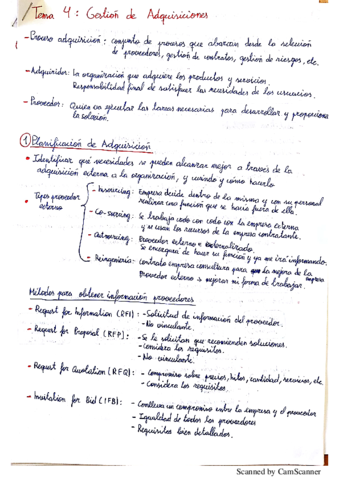 Tema 4: Gestión de Adquisiciones
- Proceso adquisición: conjunto de procesos que abarcan desde la selección
de proveedores, gestión de contratos, gestión de riesgos, etc.
- Adquiridor: La organización que adquiere los productos y servicios.
Responsabilidad final de satisfacer las necesidades de los usuarios.
- Proveedor: Quien va ejecutar las tareas necesarias para desarrollar y proporcionar
la solución.
1) Planificación de Adquisición
• Identificar qué necesidades se pueden alcanzar mejor a través de la
adquisición externa a la organización, y cuándo y cómo hacerlo
Tipos proveedor
externo
- Insourcing: Empresa decide dentro de la misma y con su personal
realizar una función que se hacía fuera de ella.
- Co-sourcing: Se trabaja codo con codo con la empresa externa
y se usan los recursos de la empresa contratante.
- Outsourcing: Proveedor externo
Se encarga de hacer su función y ya me irá informando.
- Reingeniería: Contrato empresa consultora para la mejora de la empresa
Proveedor externo → mejorar mi forma de trabajar.
Métodos para obtener información proveedores
• Request for Information (RFI): - Solicitud de información del proveedor.
- No vinculante.
• Request for Proposal (RFP): - Se le solicitan que recomienden soluciones.
- Considera los requisitos.
- No vinculante.
• Request for Quotation (RFQ): - Compromiso sobre precios, hitos, cantidad, servicios, etc.
- Considera los requisitos.
• Invitation for Bid (IFB): - Conlleva un compromiso entre la empresa y el proveedor
- Igualdad de todos los proveedores
- Requisitos bien detallados.
Scanned by CamScanner